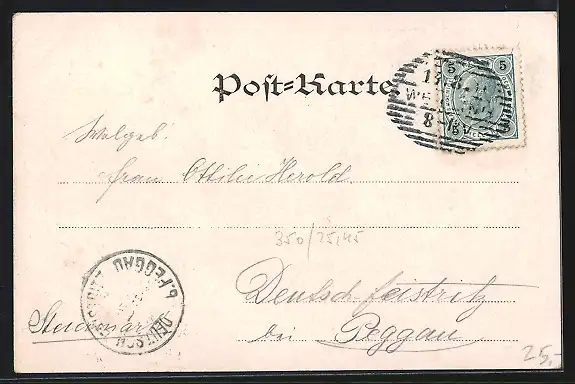 Post=Karte
5 5
Wolgeb.
Frau Ottilie Herold
350/25,45
Deutsch-Feistritz
bei Peggau
Steiermark
b. PEGGAU
DEUTSCH
25,-